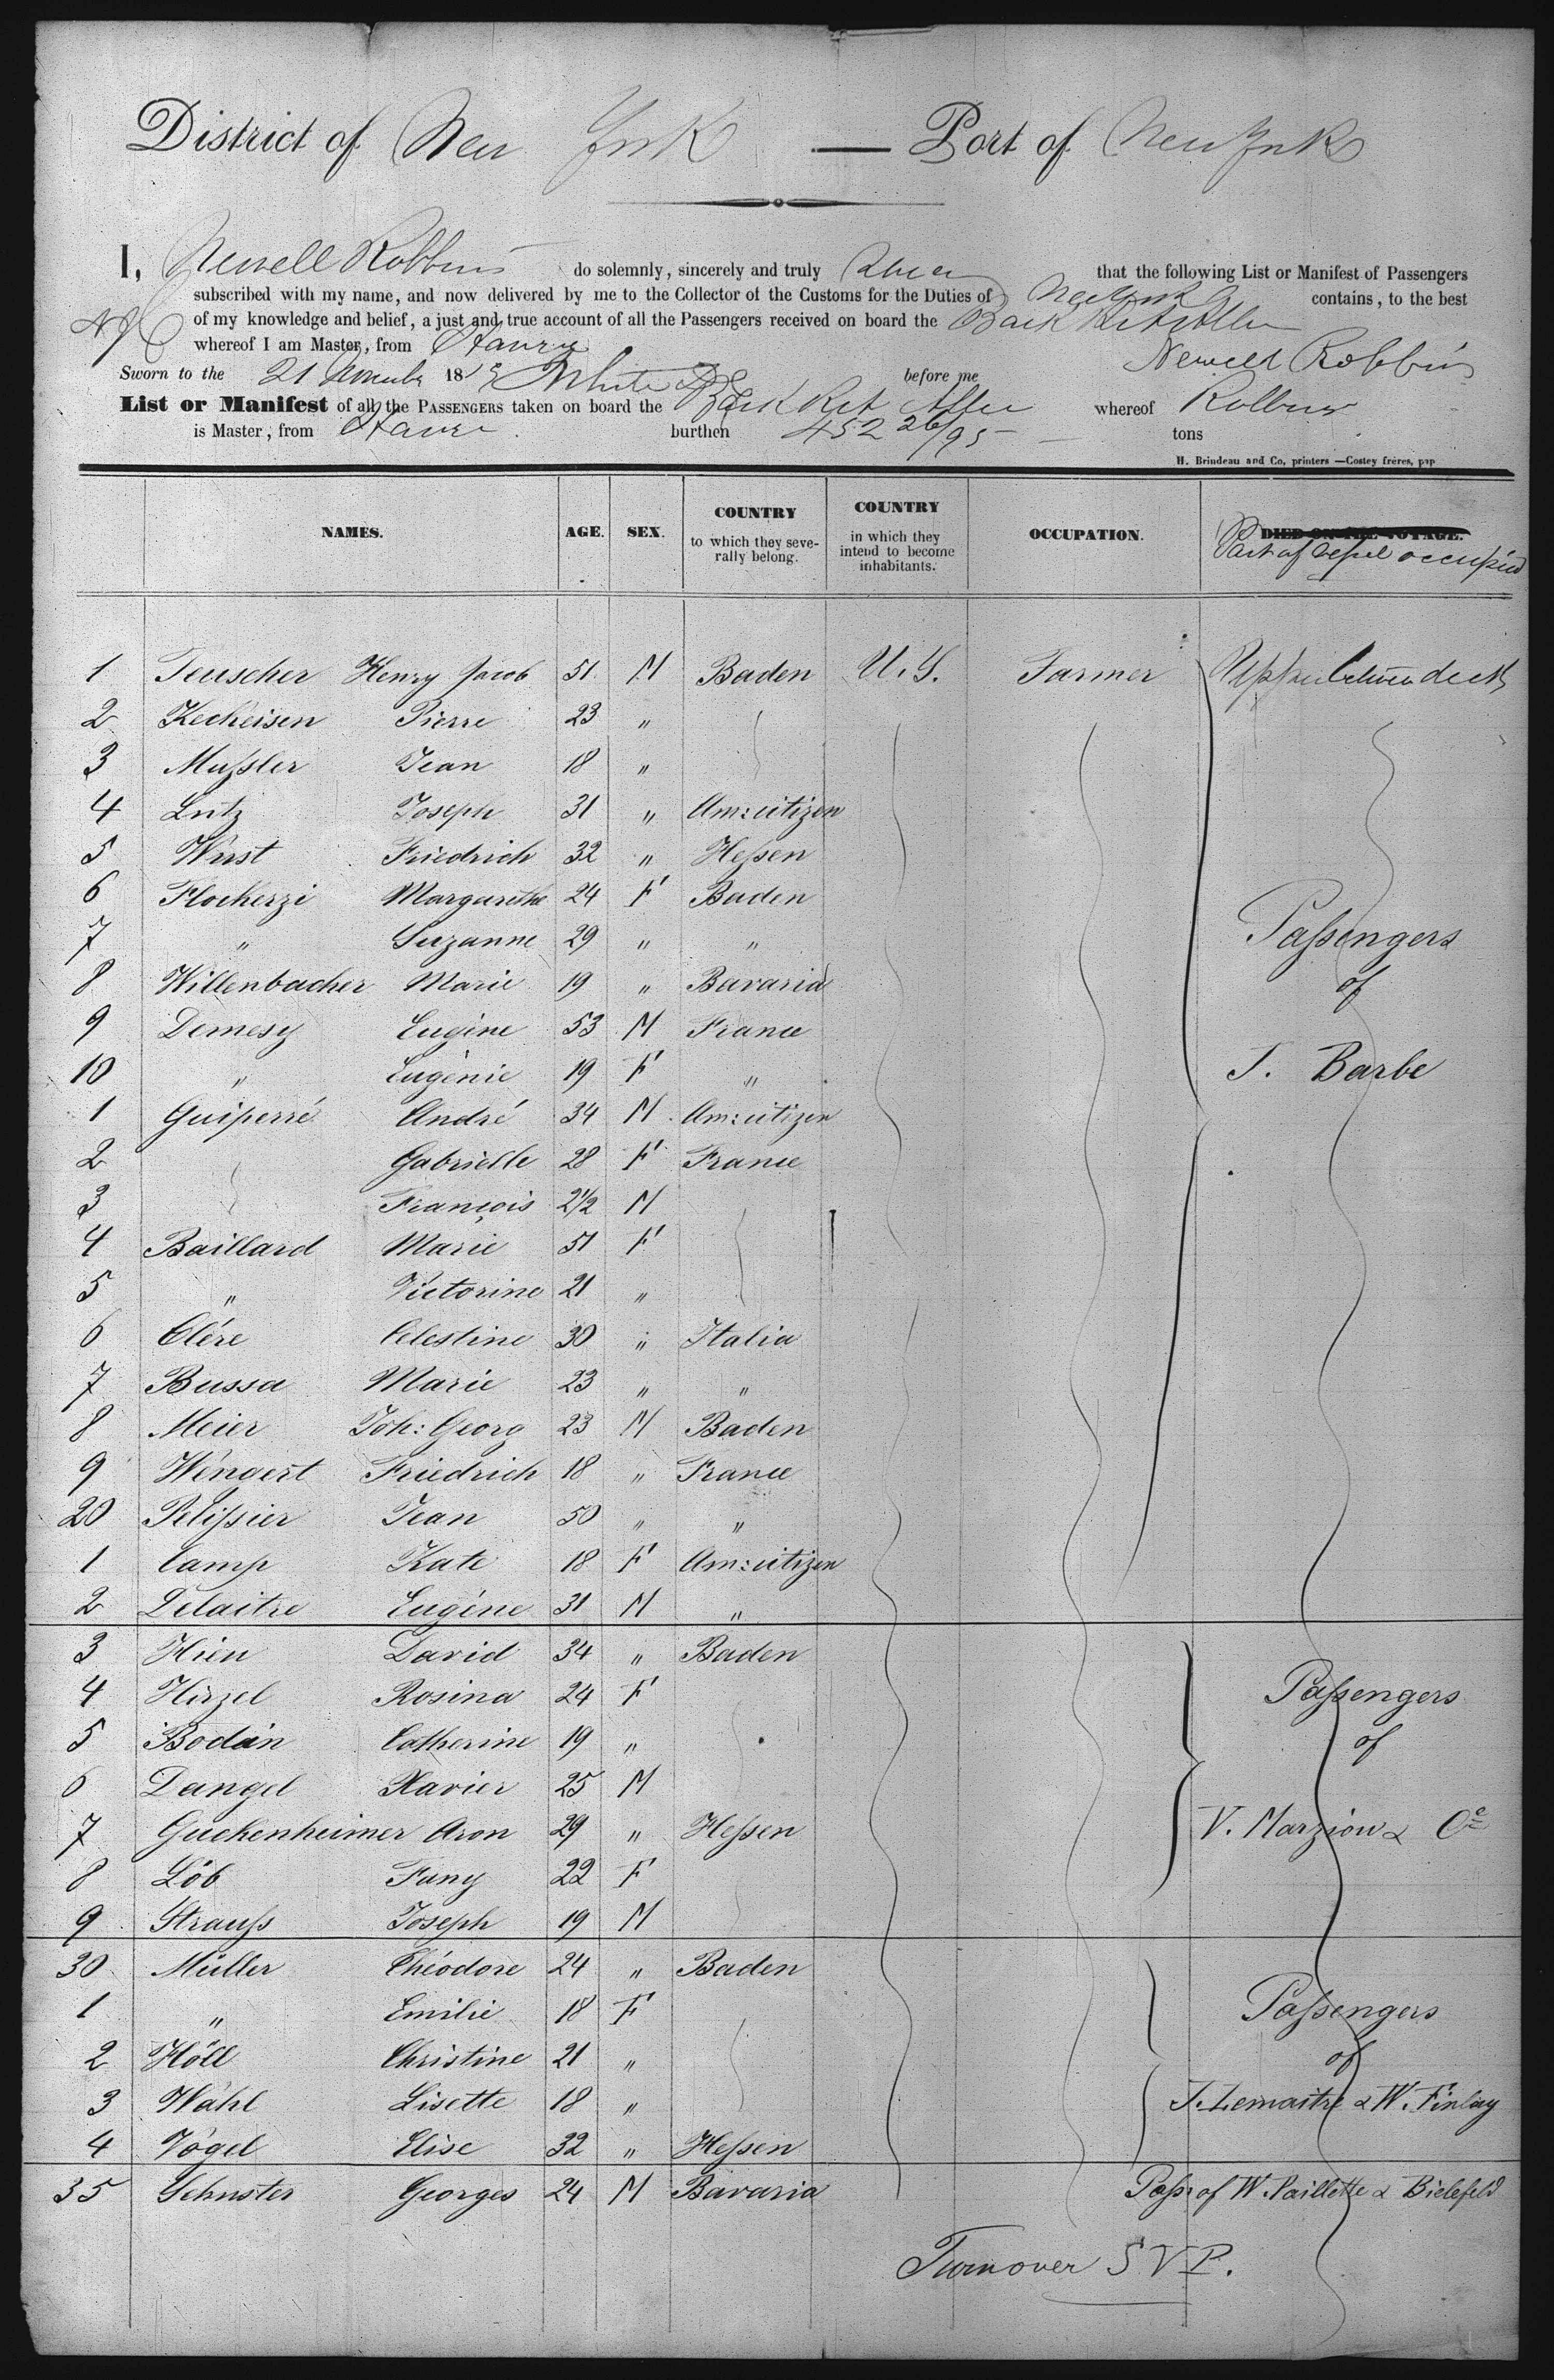 District of New York — Port of New York
I, Newell Robbins do solemnly, sincerely and truly Swear that the following List or Manifest of Passengers
subscribed with my name, and now delivered by me to the Collector of the Customs for the Duties of New York contains, to the best
of my knowledge and belief, a just and true account of all the Passengers received on board the Bark
whereof I am Master, from Havre Newell Robbins
Sworn to the 21 18 White before me
List or Manifest of all the PASSENGERS taken on board the Bark whereof Robbins
is Master, from Havre burthen 452 26/95 tons
H. Brindeau and Co, printers —Costey frères, pap
NAMES. AGE. SEX. COUNTRY to which they severally belong. COUNTRY in which they intend to become inhabitants. OCCUPATION. DIED ON THE VOYAGE.
Part of vessel occupied
1 Teuscher Henry Jacob 51 M Baden U.S. Farmer Upper between deck
2 Keckeisen Pierre 23 "
3 Mussler Jean 18 "
4 Lutz Joseph 31 " Am: citizen
5 Wust Friedrich 32 " Hessen
6 Flockerzi Margarethe 24 F Baden
7 " Suzanne 29 " " Passengers
8 Willenbacher Marie 19 " Bavaria of
9 Demesy Eugène 53 M France
10 " Eugénie 19 F " J. Barbe
1 Guiperré André 34 M Am: citizen
2 Gabrielle 28 F France
3 François 2½ M
4 Baillard Marie 51 F
5 " Victorine 21 "
6 Clére Celestine 30 " Italia
7 Bussa Marie 23 " "
8 Meier Joh: Georg 23 M Baden
9 Wengert Friedrich 18 " France
20 Pelissier Jean 50 " "
1 Camp Kate 18 F Am: citizen
2 Delaitre Eugène 31 M "
3 Hien David 34 " Baden
4 Hirzel Rosina 24 F Passengers
5 Bodan Catherine 19 " of
6 Dangel Xavier 25 M
7 Guckenheimer Aron 29 " Hessen V. Marzion & Ce
8 Löb Fany 22 F
9 Strauss Joseph 19 M
30 Müller Théodore 24 " Baden
1 " Emilie 18 F Passengers
2 Höll Christine 21 " of
3 Wahl Lisette 18 " J. Lemaitre & W. Finlay
4 Vogel Elise 32 " Hessen
35 Schuster Georges 24 M Bavaria Pass: of W. Paillette & Bielefeld
Turnover S V P.